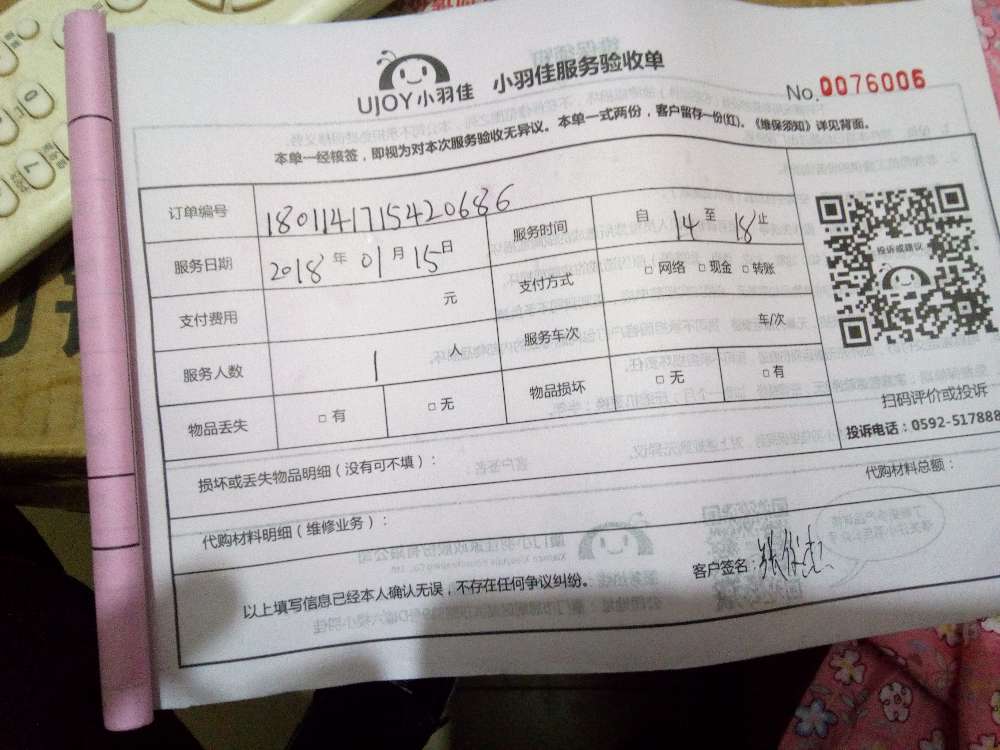 UJOY小羽佳 小羽佳服务验收单
No.0076006
本单一经核签，即视为对本次服务验收无异议。本单一式两份，客户留存一份(红)。《维保须知》详见背面。
订单编号 1801141715420686
服务日期 2018年01月15日 服务时间 自14至18止
支付费用 元 支付方式 □ 网络 □ 现金 □ 转账
服务人数 1人 服务车次 车/次
物品丢失 □ 有 □ 无 物品损坏 □ 无 □ 有
投诉或建议
扫码评价或投诉
投诉电话：0592-517888
损坏或丢失物品明细（没有可不填）：
代购材料明细（维修业务）： 代购材料总额：
以上填写信息已经本人确认无误，不存在任何争议纠纷。 客户签名：